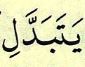 يَتَبَدَّلِ